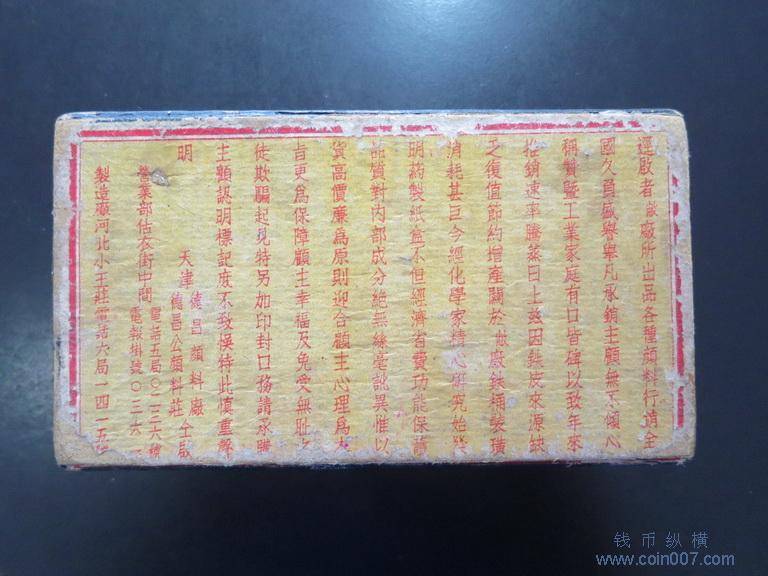 逕啟者敝廠所出品各種顏料行銷全
國久負盛譽舉凡承銷主顧無不傾心
稱贊暨工業家庭有口皆碑以致年來
推銷速率騰蒸日上茲因鉄皮來源缺
乏復值節約增產關於敝廠鉄桶裝璜
消耗甚巨今經化學家精心研究始發
明葯製紙盒不但經濟省費功能保護
品質對內部成分絕無絲毫訛異惟以
貨高價廉為原則迎合顧主心理為大
旨更為保障顧主幸福及免受無耻之
徒欺騙起見特另加印封口務請承購
主顧認明標記庶不致悞特此慎重聲
明
天津德昌顏料廠
德昌公顏料莊 仝啟
營業部估衣街中間
電話五局〇二三六號
電報掛號〇三六一
製造廠河北小王莊電話六局一四二五號
钱币纵横
www.coin007.com